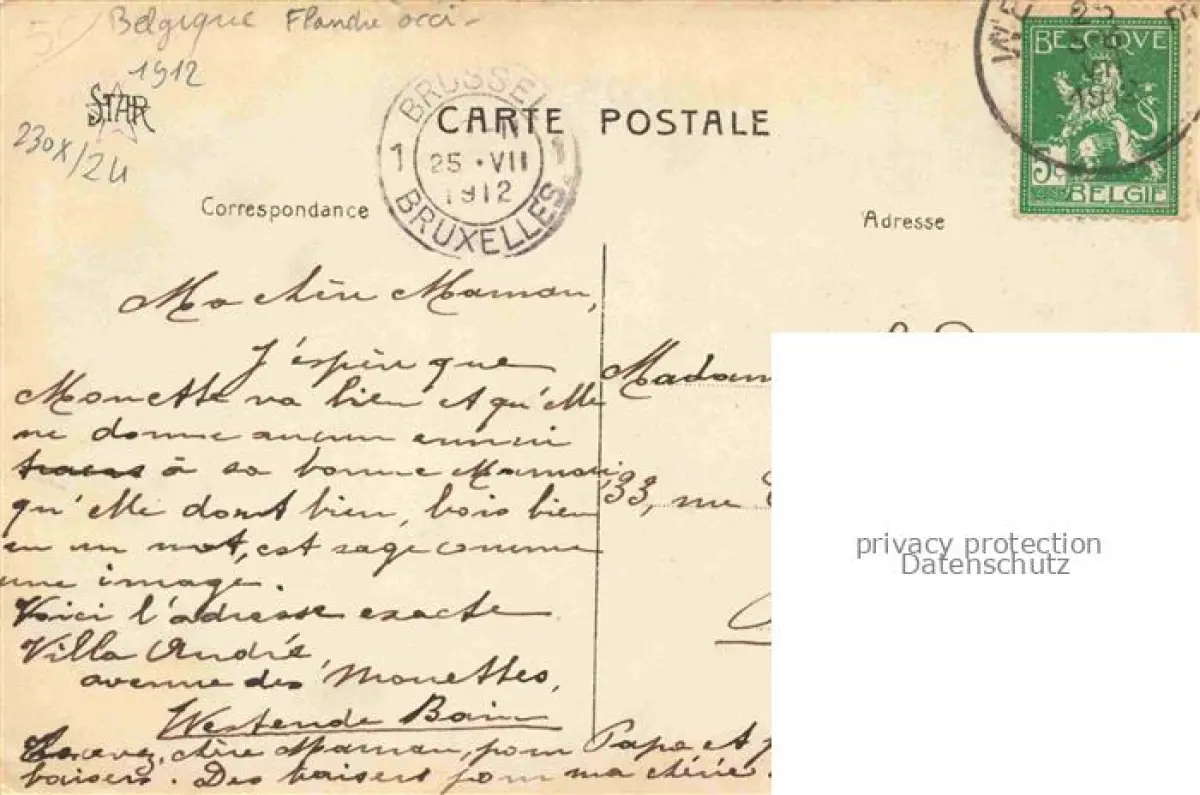 Belgique Flandre occi-
1912
STAR
230X/24
BRUSSEL
1
25 • VII
1912
BRUXELLES
CARTE POSTALE
BELGIQVE
1912
5c
BELGIE
Correspondance
Adresse
Ma chère Maman,
J'espère que
Monette va bien et qu'elle
ne donne aucun ennui
tracas à sa bonne Maman,
qu'elle dort bien, bois bien
en un mot, est sage comme
une image.
Voici l'adresse exacte
Villa André,
avenue des Mouettes,
Westende Bain
Recevez, chère Maman, pour Papa et
baisers. Des baisers pour ma chérie.
Madam
33, rue
privacy protection
Datenschutz